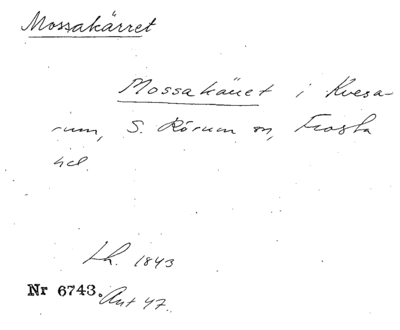 Mossakärret
Mossakärret i Kvesa-
rum, S. Rörum sn, Frosta
hd.
Lh. 1843
Nr 6743. Ant 47.